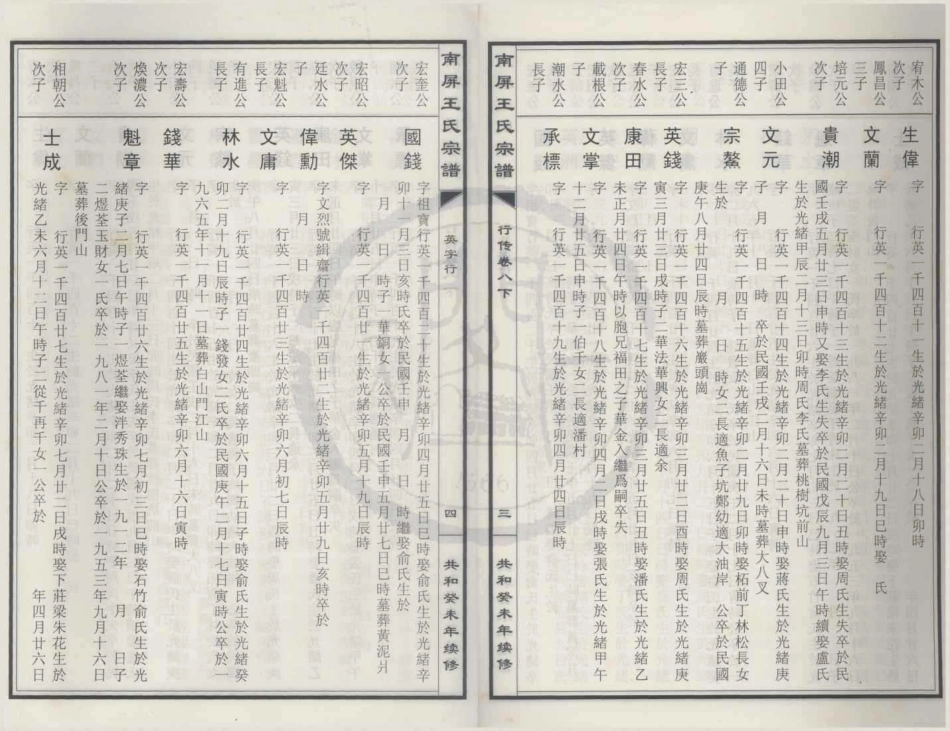 宥木公
次子
生偉
字 行英一千四百十一生於光緒辛卯二月十八日卯時
鳳昌公
三子
文蘭
字 行英一千四百十二生於光緒辛卯二月十九日巳時娶 氏
培元公
次子
貴潮
字 行英一千四百十三生於光緒辛卯二月二十日丑時娶周氏生失卒於民
國壬戌五月廿三日申時又娶李氏生失卒於民國戊辰九月三日午時續娶盧氏
生於光緒甲辰二月十三日卯時周氏李氏墓葬桃樹坑前山
小田公
四子
文元
字 行英一千四百十四生於光緒辛卯二月二十日申時娶蔣氏生於光緒庚
子 月 日 時 卒於民國壬戌二月十六日未時墓葬大八叉
通德公
子
宗鰲
字 行英一千四百十五生於光緒辛卯二月廿九日卯時娶柘前丁林松長女
生於 月 日 時女二長適魚子坑鄭幼適大油岸 公卒於民國
庚午八月廿四日辰時墓葬巖頭崗
宏三公
長子
英錢
字 行英一千四百十六生於光緒辛卯三月廿二日酉時娶周氏生於光緒庚
寅三月廿三日戌時子二華法華興女二長適余
春水公
次子
康田
字 行英一千四百十七生於光緒辛卯三月廿五日丑時娶潘氏生於光緒乙
未正月廿四日午時以胞兄福田之子華金入繼爲嗣卒失
載根公
子
文掌
字 行英一千四百十八生於光緒辛卯四月二日戌時娶張氏生於光緒甲午
十二月廿五日申時子一伯千女二長適潘村
潮水公
長子
承標
字 行英一千四百十九生於光緒辛卯四月廿四日辰時
南屏王氏宗譜
行传卷八下
三
共和癸未年续修
南屏王氏宗譜
英字行
四
共和癸未年续修
宏奎公
次子
國錢
字祖寶行英一千四百二十生於光緒辛卯四月廿五日巳時娶俞氏生於光緒辛
卯十一月三日亥時氏卒於民國壬申 月 日 時繼娶俞氏生於
年 月 日 時子一華銅女一公卒於民國壬申五月廿七日巳時墓葬黄泥爿
宏昭公
次子
英傑
字 行英一千四百廿一生於光緒辛卯五月十九日辰時
廷水公
子
偉勳
字文烈號緝齋行英一千四百廿二生於光緒辛卯五月廿九日亥時卒於
月 日 時
宏魁公
長子
文庸
字 行英一千四百廿三生於光緒辛卯六月初七日辰時
有進公
長子
林水
字 行英一千四百廿四生於光緒辛卯六月十五日子時娶俞氏生於光緒癸
卯二月十九日辰時子一錢發女二氏卒於民國庚午二月十七日寅時公卒於一
九六五年十一月十一日墓葬白山門江山
宏壽公
次子
錢華
字 行英一千四百廿五生於光緒辛卯六月十六日寅時
煥濃公
次子
魁章
字 行英一千四百廿六生於光緒辛卯七月初三日巳時娶石竹俞氏生於光
緒庚子二月七日午時子一煜荃繼娶泮秀珠生於一九一二年 月 日子
二煜荃玉財女一氏卒於一九八一年二月十日公卒於一九五三年九月十六日
墓葬後門山
相朝公
次子
士成
字 行英一千四百廿七生於光緒辛卯七月廿二日戌時娶下莊梁朱花生於
光緒乙未六月十二日午時子二從千再千女一公卒於 年四月廿六日